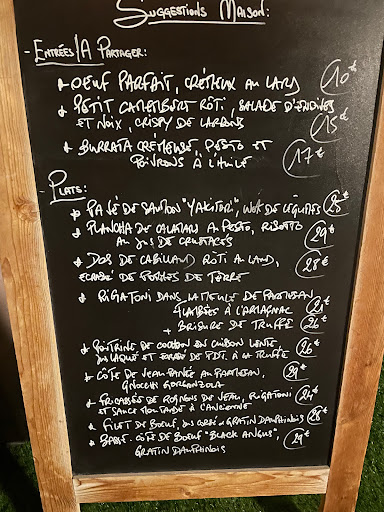 Suggestions Maison:
- Entrées/A Partager:
* Oeuf Parfait, Crémeux au Lard 10€
* Petit Camembert Rôti, Salade d'Endives
et Noix, Crispy de Lardons 15€
* Burrata Crémeuse, Pesto et
Poivrons à l'Huile 17€
- Plats:
* Pavé de Saumon "Yakitori", Wok de Légumes 25€
* Plancha de Calamar au Pesto, Risotto
au Jus de Crustacés 29€
* Dos de Cabillaud Rôti au Lard, 28€
Ecrasé de Pommes de Terre
* Rigatoni dans la Meule de Parmesan
Flambées à l'Armagnac
+ Brisure de Truffe 26€
* Poitrine de Cochon en Cuisson Lente, 26€
Jus Laqué et Ecrasé de PDT à la Truffe
* Côte de Veau Panée au Parmesan, 29€
Gnocchi Gorgonzola
* Fricassée de Rognons de Veau, Rigatoni 24€
et Sauce Moutarde à l'Ancienne
* Filet de Boeuf, Jus Corsé et Gratin Dauphinois 28€
* Basse-Côte de Boeuf "Black Angus", 29€
Gratin Dauphinois